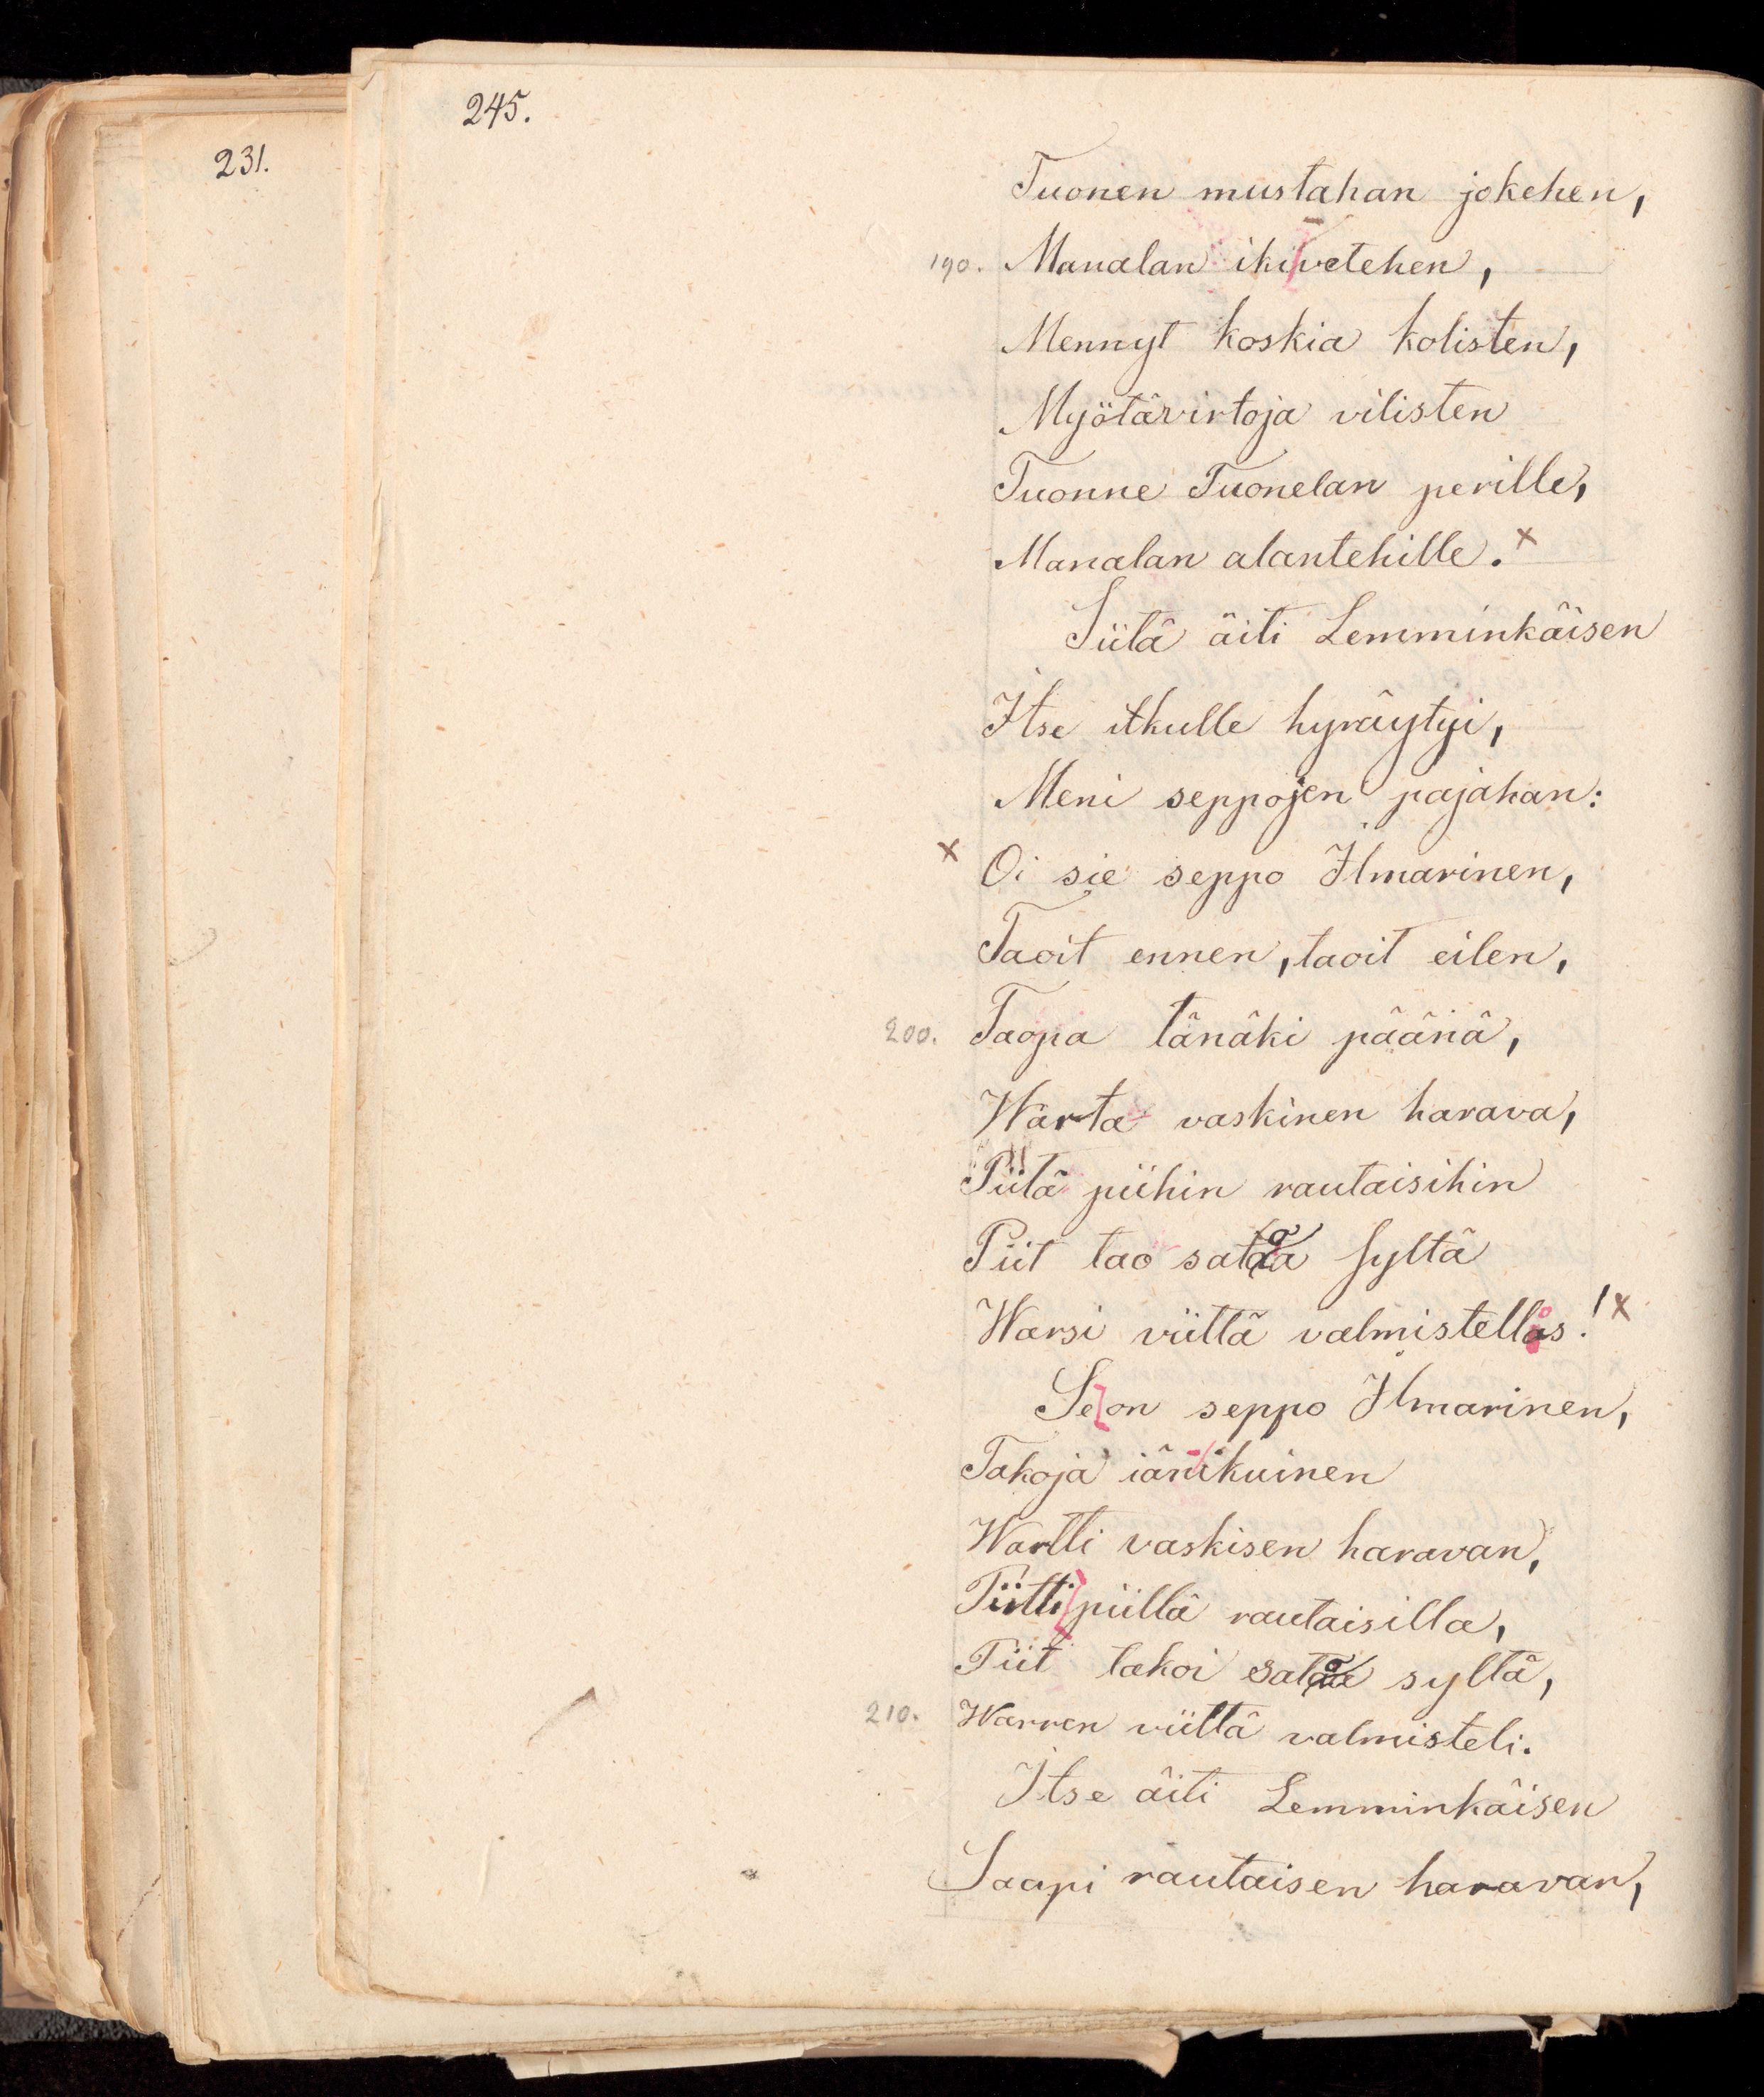 245.
231.
Tuonen mustahan jokehen,
190. Manalan ikivetehen,
Mennyt koskia kolisten,
Myötävirtoja vilisten
Tuonne Tuonelan perille,
Manalan alantehille. x
Siitä äiti Lemminkäisen
Itse itkulle hyräytyi,
Meni seppojen pajahan:
x Oi sie seppo Ilmarinen,
Taoit ennen, taoit eilen,
200. Taopa tänäki päänä,
Warta vaskinen harava,
Piitä piihin rautaisihin
Piit tao sataa syltä
Warsi viittä valmistellos! x
Se on seppo Ilmarinen,
Takoja iänikuinen
Wartti vaskisen haravan,
Piitti piillä rautaisilla,
Piit takoi sataa syltä,
210. Warren viittä valmisteli.
Itse äiti Lemminkäisen
Saapi rautaisen haravan,